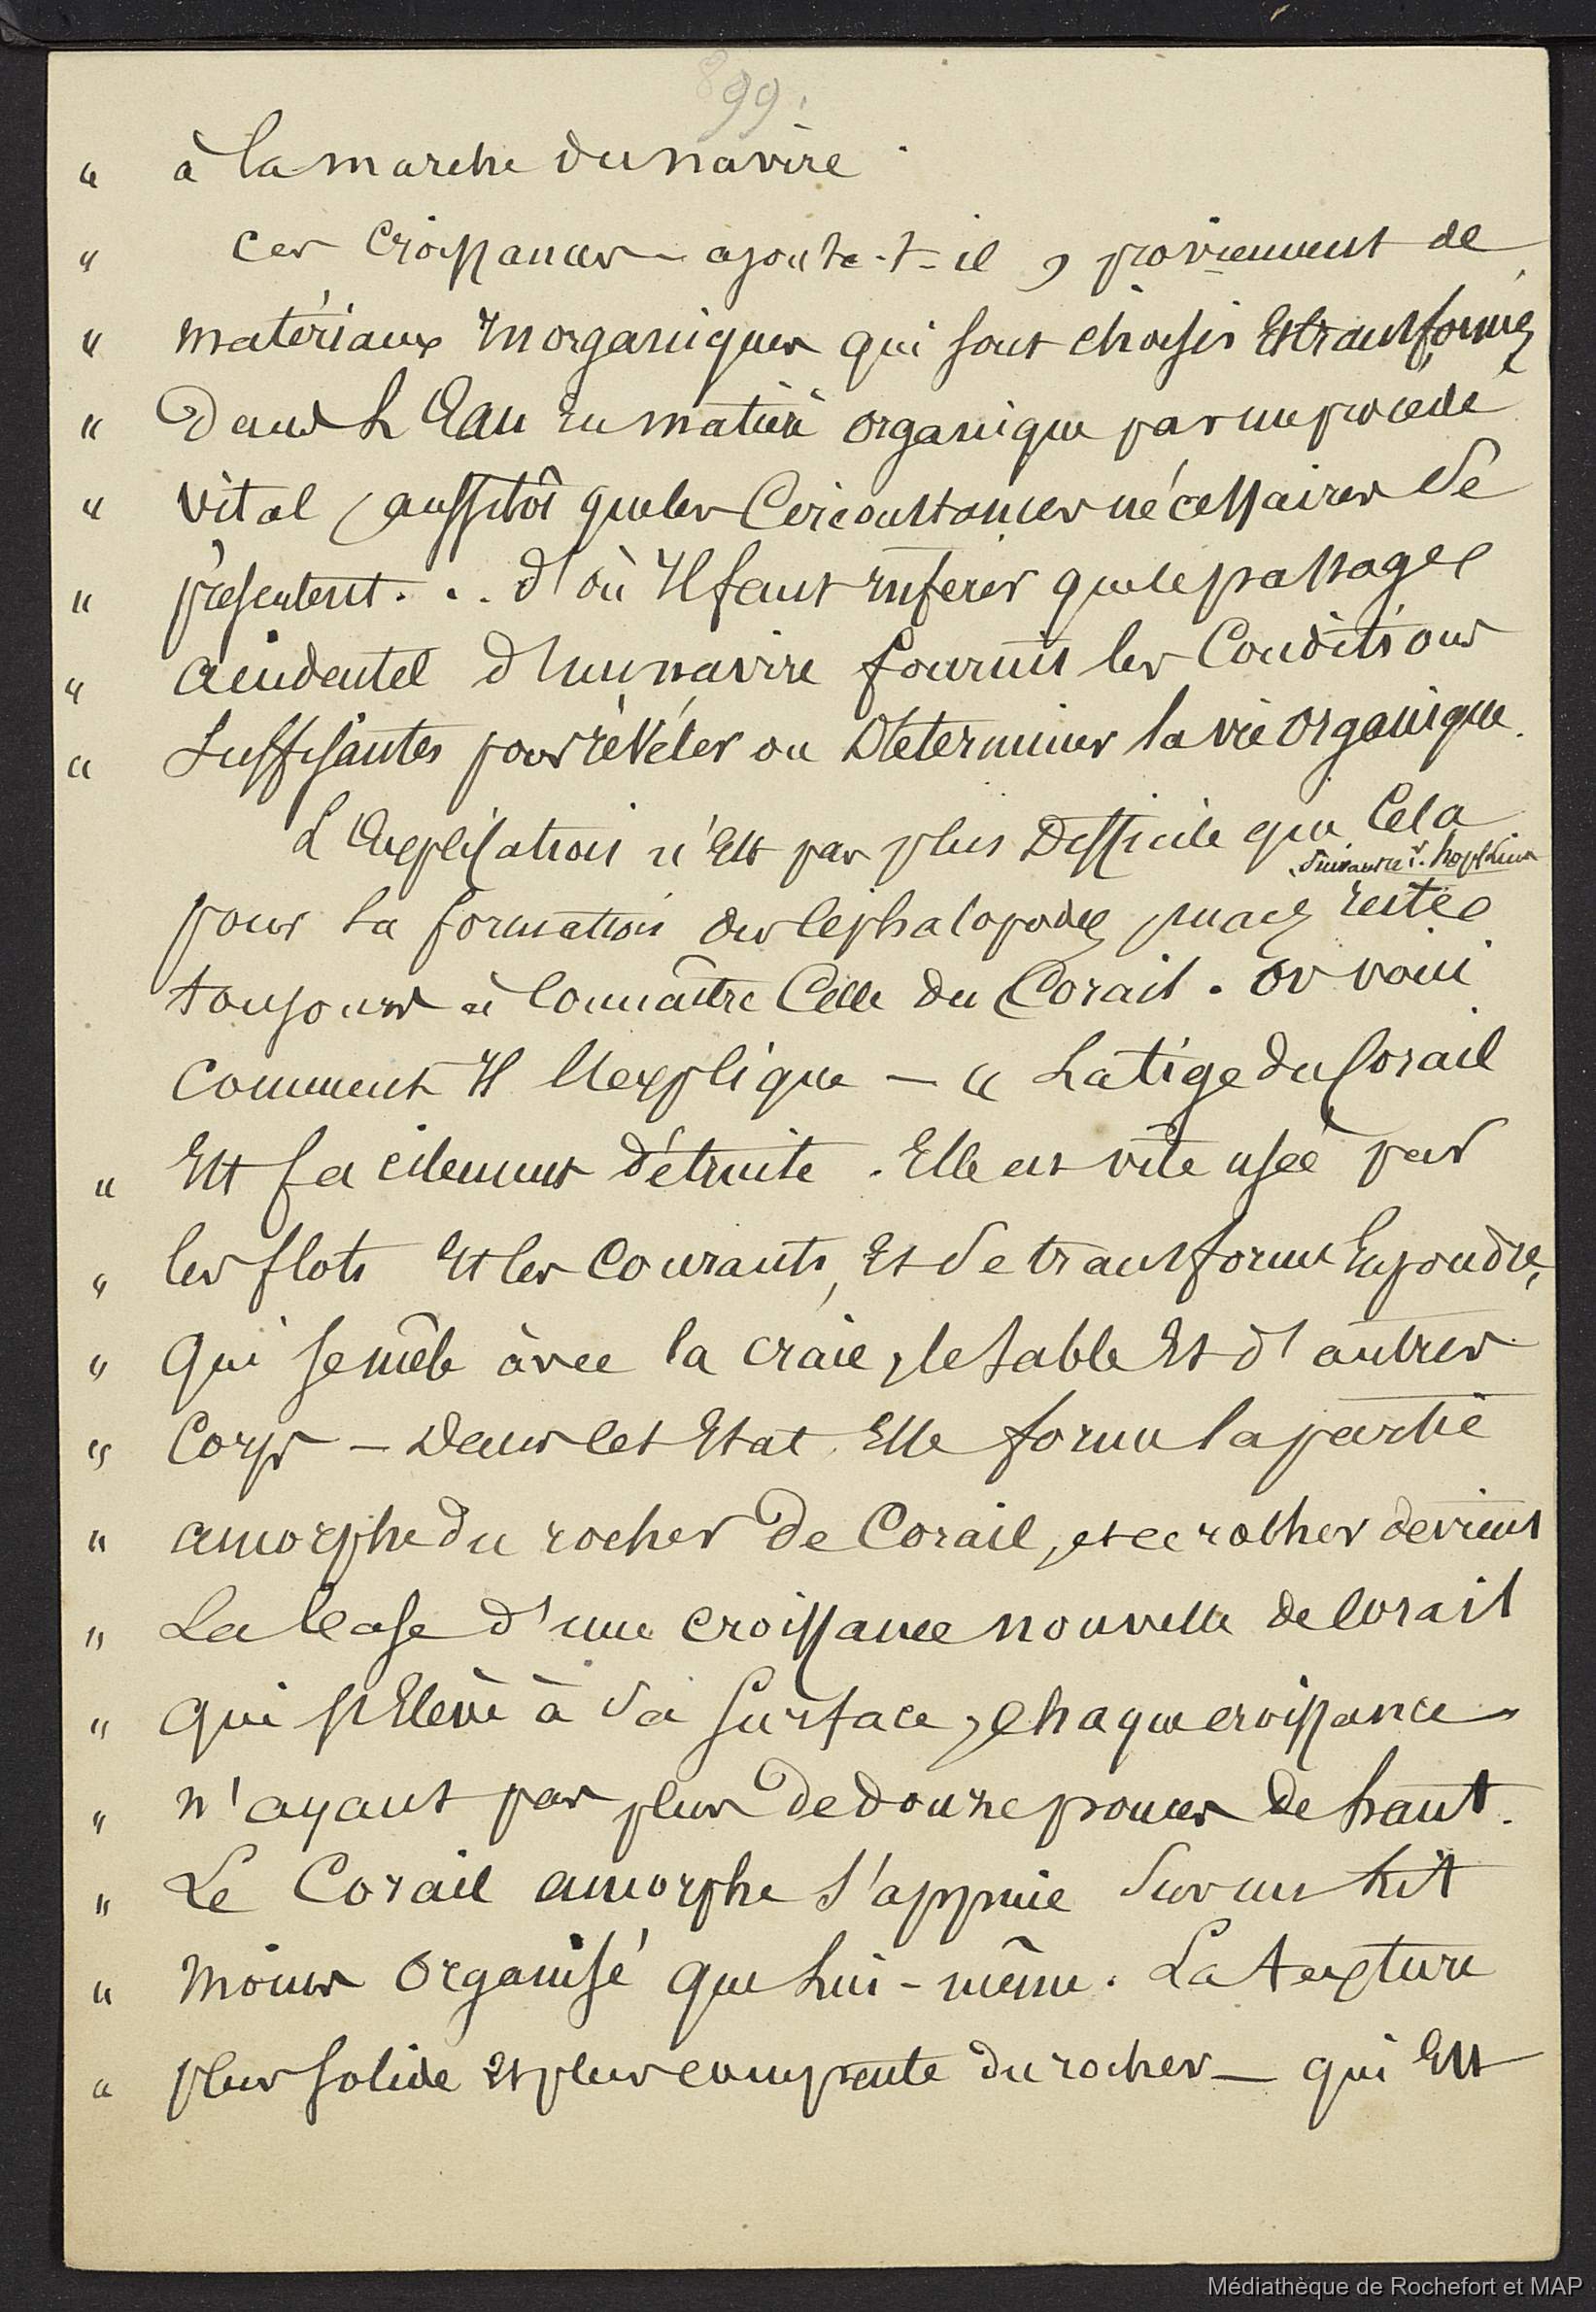 899.
" à la marche du navire.
" Ces Croissances ajoute-t-il, proviennent de
" matériaux Inorganiques qui sont choisis Et transformés
" Dans L'Eau En matière organique par un procédé
" vital, aussitôt que les Circonstances nécessaires se
" présentent... d'où Il faut Inférer que le passage
" accidentel d'un navire fournit les Conditions
" Suffisantes pour révéler ou Déterminer la vie organique.
L'Explication n'Est pas plus Difficile que Cela
suivant le Dr. hopkins
pour la formation des Céphalopodes, mais reste
toujours à Connaître Celle du Corail. Or voici
Comment Il l'explique — " La tige du Corail
" Est facilement détruite. Elle est vite usée par
" les flots Et les Courants, Et se transforme En poudre,
" Qui se mêle avec la craie, le sable Et d'autres
" Corps — Dans cet Etat Elle forme la partie
" amorphe du rocher De Corail, et ce rocher devient
" La base d'une croissance nouvelle de Corail
" qui s'Elève à sa surface, chaque croissance
" n'ayant pas plus De douze pouces de haut.
" Le Corail amorphe s'appuie Sur un Lit
" Moins Organisé que Lui-même. La texture
" plus solide Et plus compacte du rocher — qui Est
Médiathèque de Rochefort et MAP